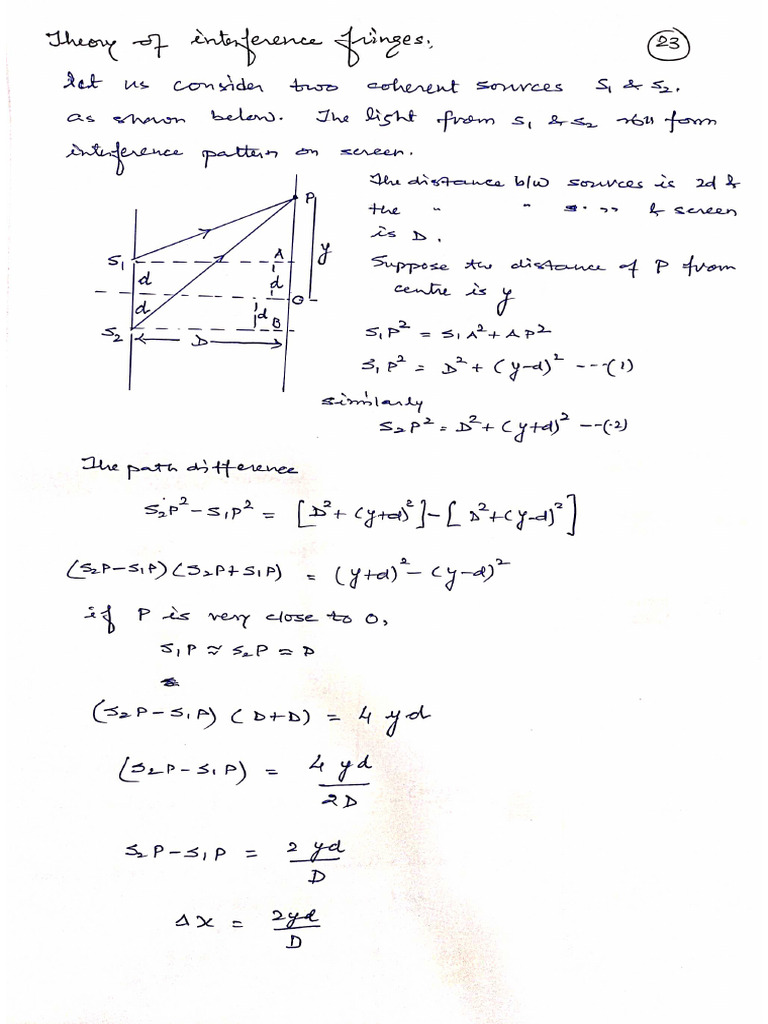 Theory of interference fringes.
23
let us consider two coherent sources S₁ & S₂.
as shown below. The light from S₁ & S₂ form
interference pattern on screen.
The distance b/w sources is 2d &
the " " " & screen
is D.
Suppose the distance of P from
centre is y
P
S₁
A
y
d
d
O
d
d
S₂
B
D
S₁P² = S₁A² + AP²
S₁P² = D² + (y-d)² ---(1)
similarly
S₂P² = D² + (y+d)² --(2)
The path difference
S₂P² - S₁P² = [D² + (y+d)²] - [D² + (y-d)²]
(S₂P - S₁P) (S₂P + S₁P) = (y+d)² - (y-d)²
if P is very close to O,
S₁P ≈ S₂P = D
(S₂P - S₁P) (D+D) = 4 yd
(S₂P - S₁P) = 4 yd / 2D
S₂P - S₁P = 2 yd / D
Δx = 2yd / D